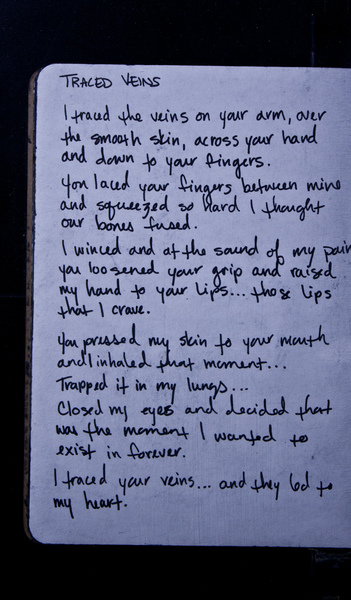 TRACED VEINS
I traced the veins on your arm, over
the smooth skin, across your hand
and down to your fingers.
You laced your fingers between mine
and squeezed so hard I thought
our bones fused.
I winced and at the sound of my pain
you loosened your grip and raised
my hand to your lips... those lips
that I crave.
You pressed my skin to your mouth
and I inhaled that moment...
Trapped it in my lungs...
Closed my eyes and decided that
was the moment I wanted to
exist in forever.
I traced your veins... and they led to
my heart.